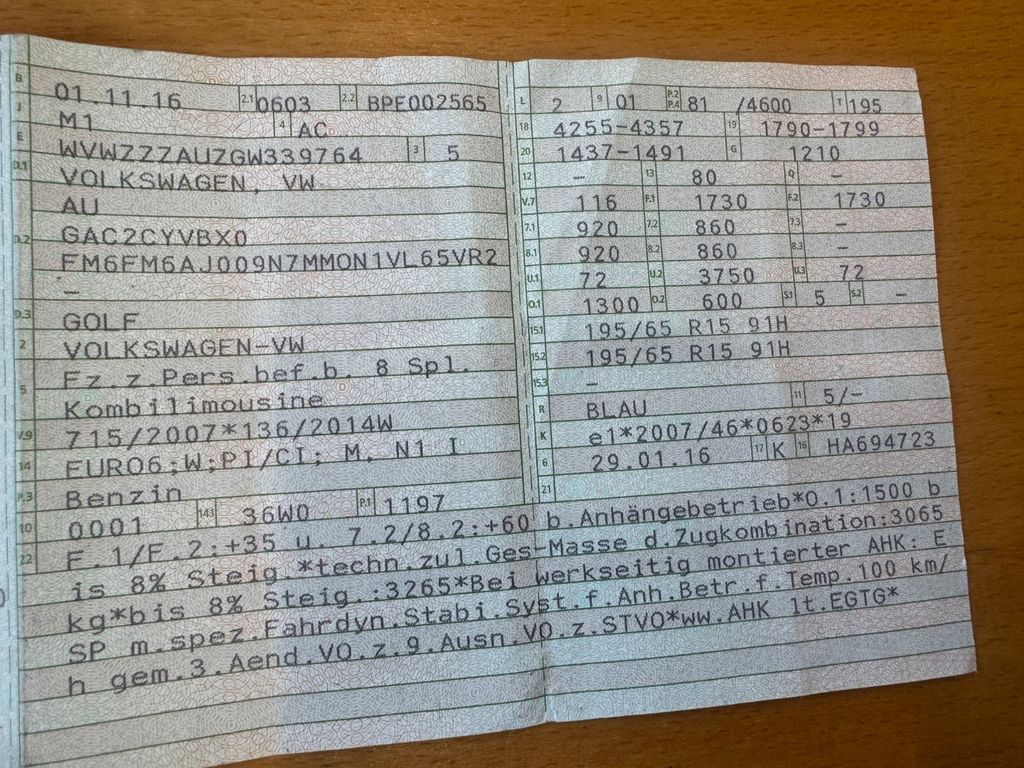 B 01.11.16 2.1 0603 2.2 BPE002565
J M1 4 AC
E WVWZZZAUZGW339764 3 5
D.1 VOLKSWAGEN, VW
AU
D.2 GAC2CYVBX0
FM6FM6AJ009N7MMON1VL65VR2
–
D.3 GOLF
2 VOLKSWAGEN-VW
5 Fz.z.Pers.bef.b. 8 Spl.
Kombilimousine
V.9 715/2007*136/2014W
14 EURO6;W;PI/CI; M, N1 I
P.3 Benzin
10 0001 14.1 36W0 P.1 1197
L 2 9 01 P.2 P.4 81 /4600 T 195
18 4255-4357 19 1790-1799
20 1437-1491 G 1210
12 – 13 80 Q –
V.7 116 F.1 1730 F.2 1730
7.1 920 7.2 860 7.3 –
8.1 920 8.2 860 8.3 –
U.1 72 U.2 3750 U.3 72
O.1 1300 O.2 600 S.1 5 S.2 –
15.1 195/65 R15 91H
15.2 195/65 R15 91H
15.3 –
R BLAU 11 5/–
K e1*2007/46*0623*19
6 29.01.16 17 K 16 HA694723
21
22 F.1/F.2:+35 u. 7.2/8.2:+60 b.Anhängebetrieb*O.1:1500 b
is 8% Steig.*techn.zul.Ges-Masse d.Zugkombination:3065
kg*bis 8% Steig.:3265*Bei werkseitig montierter AHK: E
SP m.spez.Fahrdyn.Stabi.Syst.f.Anh.Betr.f.Temp.100 km/
h gem.3.Aend.VO.z.9.Ausn.VO.z.STVO*ww.AHK lt.EGTG*